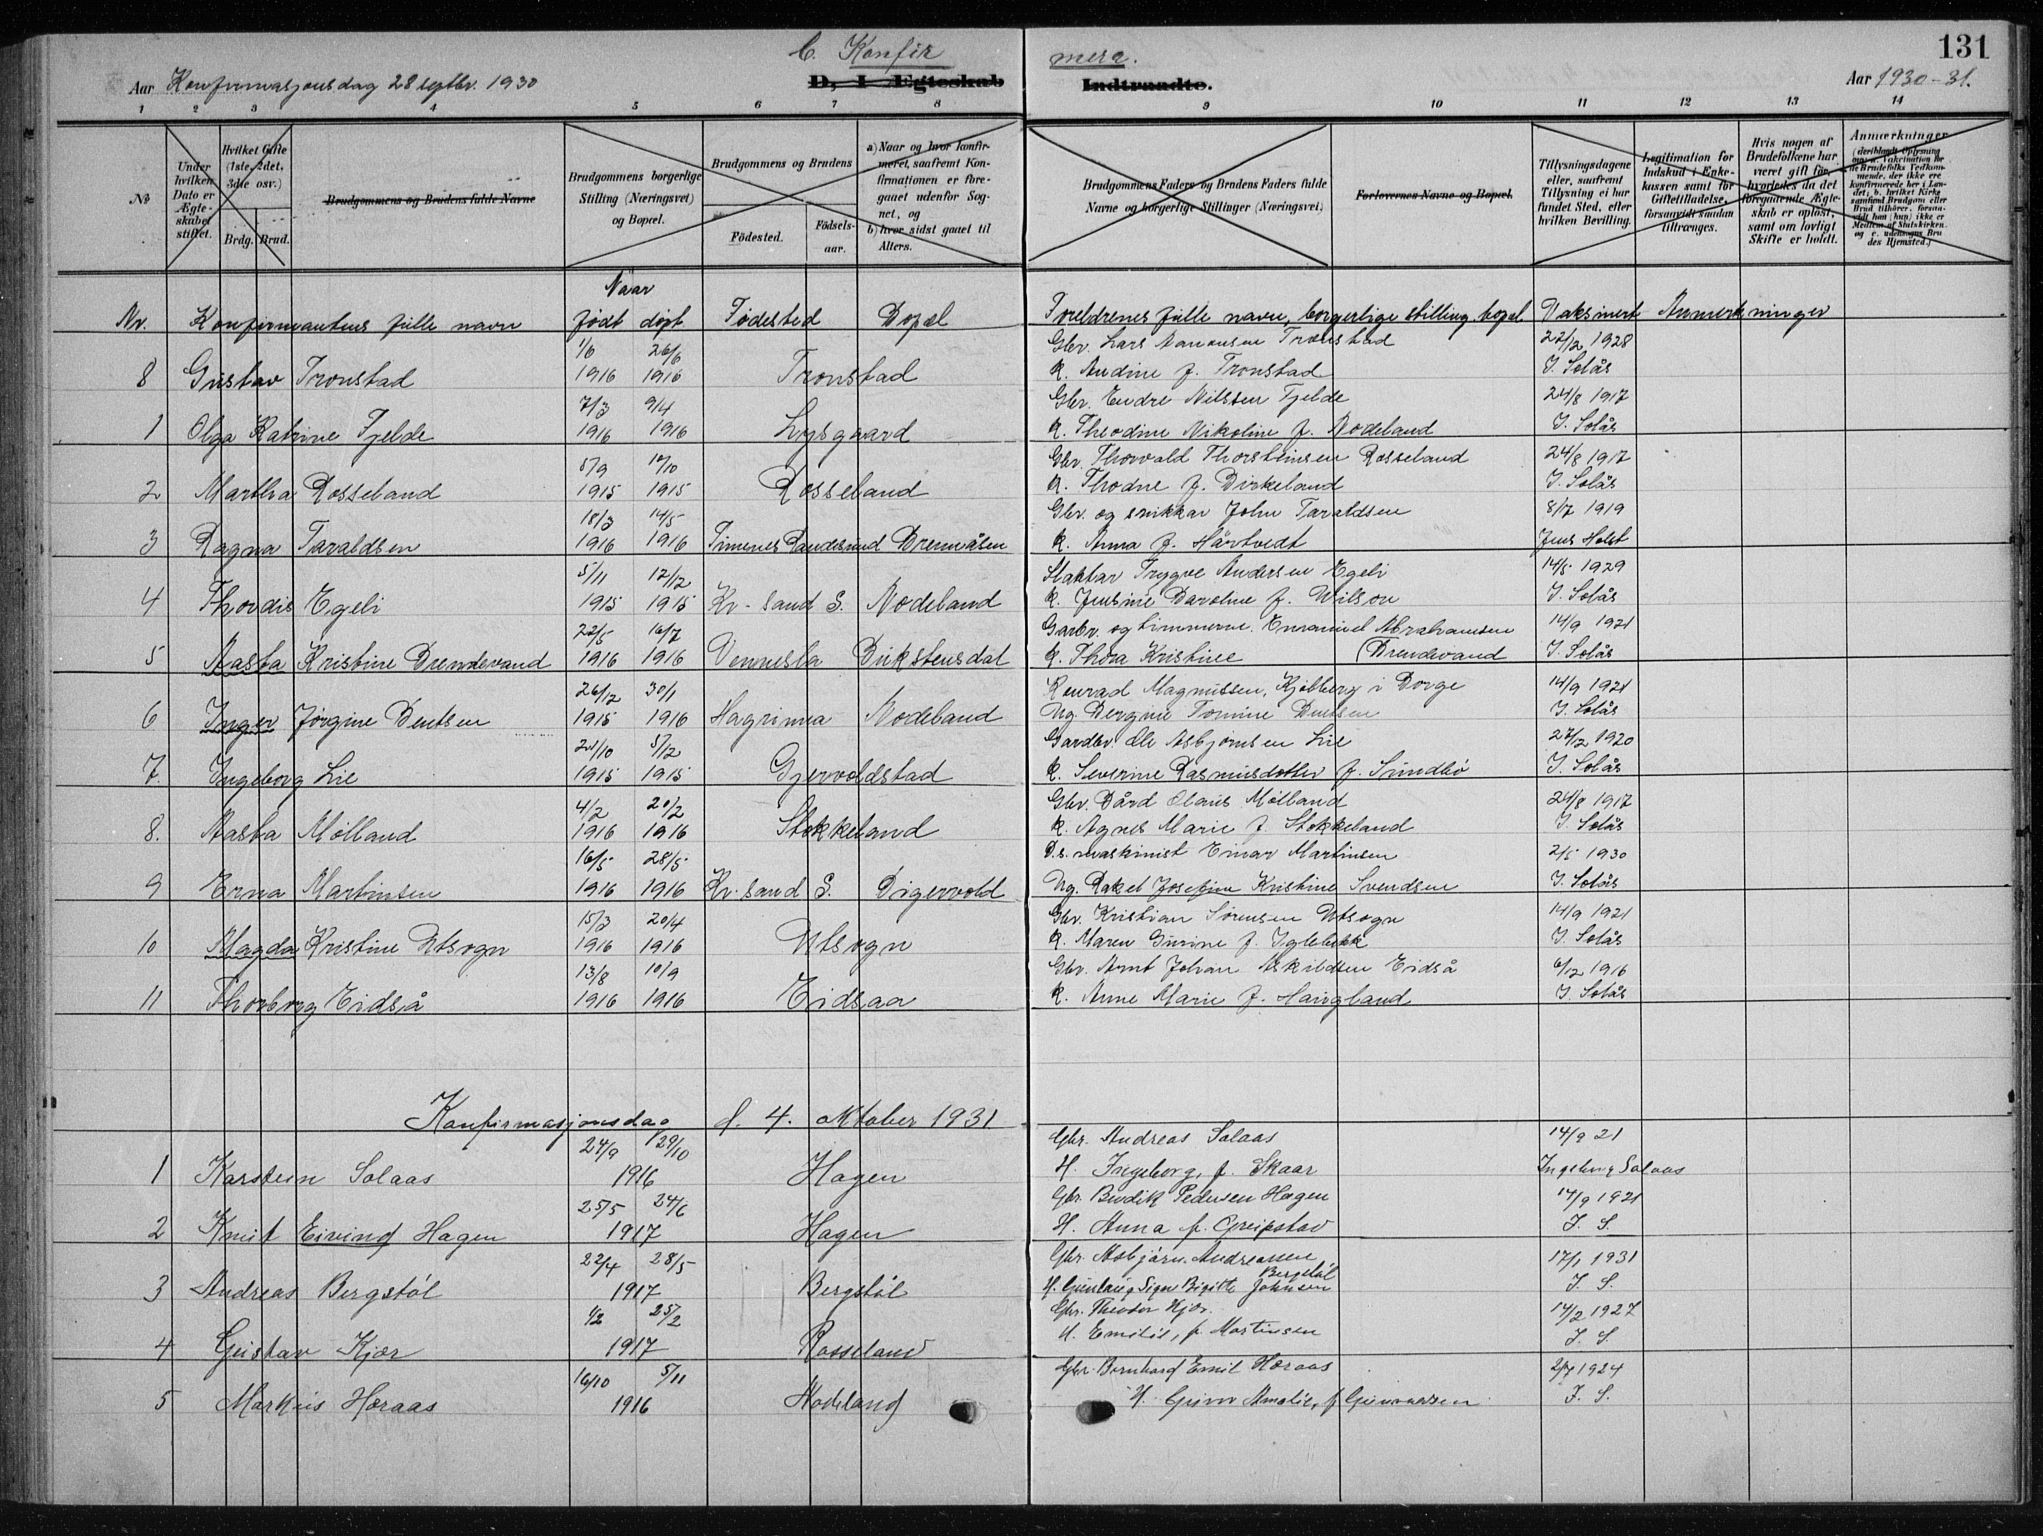 131
C. Konfir mera.
Aar Konfirmasjonsdag 28 septbr. 1930
D, I Ægteskab Indtraadte.
Aar 1930-31.
1 2 3 4 5 6 7 8 9 10 11 12 13 14
No
Under hvilken Dato er Ægteskabet stiftet.
Hvilket Gifte (1ste, 2det, 3die osv.)
Brdg. Brud.
Brudgommens og Brudens fulde Navne
Brudgommens borgerlige Stilling (Næringsvei) og Bopæl.
Brudgommens og Brudens
Fødested. Fødselsaar.
a) Naar og hvor konfirmeret, saafremt Konfirmationen er foregaaet udenfor Sognet, og
b) hvor sidst gaaet til Alters.
Brudgommens Faders og Brudens Faders fulde Navne og borgerlige Stillinger (Næringsvei)
Forlovernes Navne og Bopæl.
Tillysningsdagene eller, saafremt Tillysning ei har fundet Sted, efter hvilken Bevilling.
Legitimation for Indskud i Enkekassen samt for Giftetilladelse, forsaavidt saadan tiltrænges.
Hvis nogen af Brudefolkene har været gift før, hvorledes da det foregaaende Ægteskab er opløst, samt om lovligt Skifte er holdt.
Anmærkninger
Naar
Nr. Konfirmantens fulle navn født døpt Fødested Bopel Foreldrenes fulle navn, borgerlige stilling bopel Vaksinert Anmerkninger
1/6 26/6 Gbr. Lars Aanensen Tronstad 22/12 1928
8 Gustav Tronstad 1916 1916 Tronstad k. Andine f. Tronstad I. Solås
7/3 9/4 Gbr. Endre Nilssen Fjelde 24/8 1917
1 Olga Katrine Fjelde 1916 1916 Lysgaard k. Theodine Nikoline f. Nodeland I. Solås
5/9 10/10 Gbr. Thorvald Thorsteinsen Rosseland 24/8 1917
2 Martha Rosseland 1915 1915 Rosseland k. Thodne f. Birkeland I. Solås
18/3 14/5 Gbr. og snikkar John Taraldsen 8/7 1919
3 Ragna Taraldsen 1916 1916 Timenes Randesund Brennåsen k. Anna f. Hårtvedt Jens Holst
5/11 12/12 Slaktar Trygve Andersen Egeli 14/5 1929
4 Thordis Egeli 1915 1915 Kr-sand S. Nodeland k. Jensine Baroline f. Wilson I. Solås
22/5 16/7 Garbr. og timmerm. Emanuel Abrahamsen 14/9 1921
5 Aasta Kristine Drendevand 1916 1916 Vennesla Bukstensdal k. Thora Kristine (Drendevand I. Solås
26/12 30/1 Konrad Magnussen, Kjøbberg i Borge 14/9 1921
6 Inger Jørgine Bentsen 1915 1916 Hægrinna Nodeland Ug. Bergine Tomine Bentsen I. Solås
21/10 5/12 Gardbr. Ole Asbjørnsen Lie 27/2 1920
7. Ingeborg Lie 1915 1915 Gjervoldstad k. Severine Rasmusdotter f. Sundbø I. Solås
4/2 20/2 Gbr. Bård Olaus Mølland 24/8 1917
8. Aasta Mølland 1916 1916 Stokkeland k. Agnes Marie f. Stokkeland I. Solås
16/5 28/5 D.s. maskinist Einar Martinsen 2/5 1930
9 Erna Martinsen 1916 1916 Kr.sand S. Digervold Ug. Rakel Josefine Kristine Svendsen I. Solås
15/3 20/4 Gbr. Kristian Sørensen Utsogn 14/9 1921
10 Magda Kristine Utsogn 1916 1916 Utsogn k. Maren Gurine f. Iglebekk I. Solås
13/8 10/9 Gbr. Arnt Johan Askildsen Eidså 6/12 1916
11 Thorborg Eidså 1916 1916 Eidsaa k. Anne Marie f. Haugland I. Solås
Konfirmasjonsdag d. 4. oktober 1931
24/9 29/10 Gbr. Andreas Solaas 14/9 21
1 Karstein Solaas 1916 Hagen H. Ingeborg, f. Skaar Ingeborg Solaas
25/5 24/6 Gbr. Bendik Pedersen Hagen 14/9 1921
2 Knut Eivind Hagen 1917 Hagen H. Anna f. Greipstad I. S.
22/4 28/5 Gbr. Asbjørn Andreassen Bergstøl 17/1 1931
3 Andreas Bergstøl 1917 Bergstøl H. Signe Birgitte Johnsen I. S.
1/2 25/2 Gbr. Theodor Kjær. 14/2 1927
4 Gustav Kjær 1917 Rosseland H. Emilie, f. Martinsen I. S.
16/10 5/11 Gbr. Bernhard Emil Horaas 2/7 1924
5 Markus Horaas 1916 Nodeland H. Gunn Amalie, f Gunnarsen I. S.